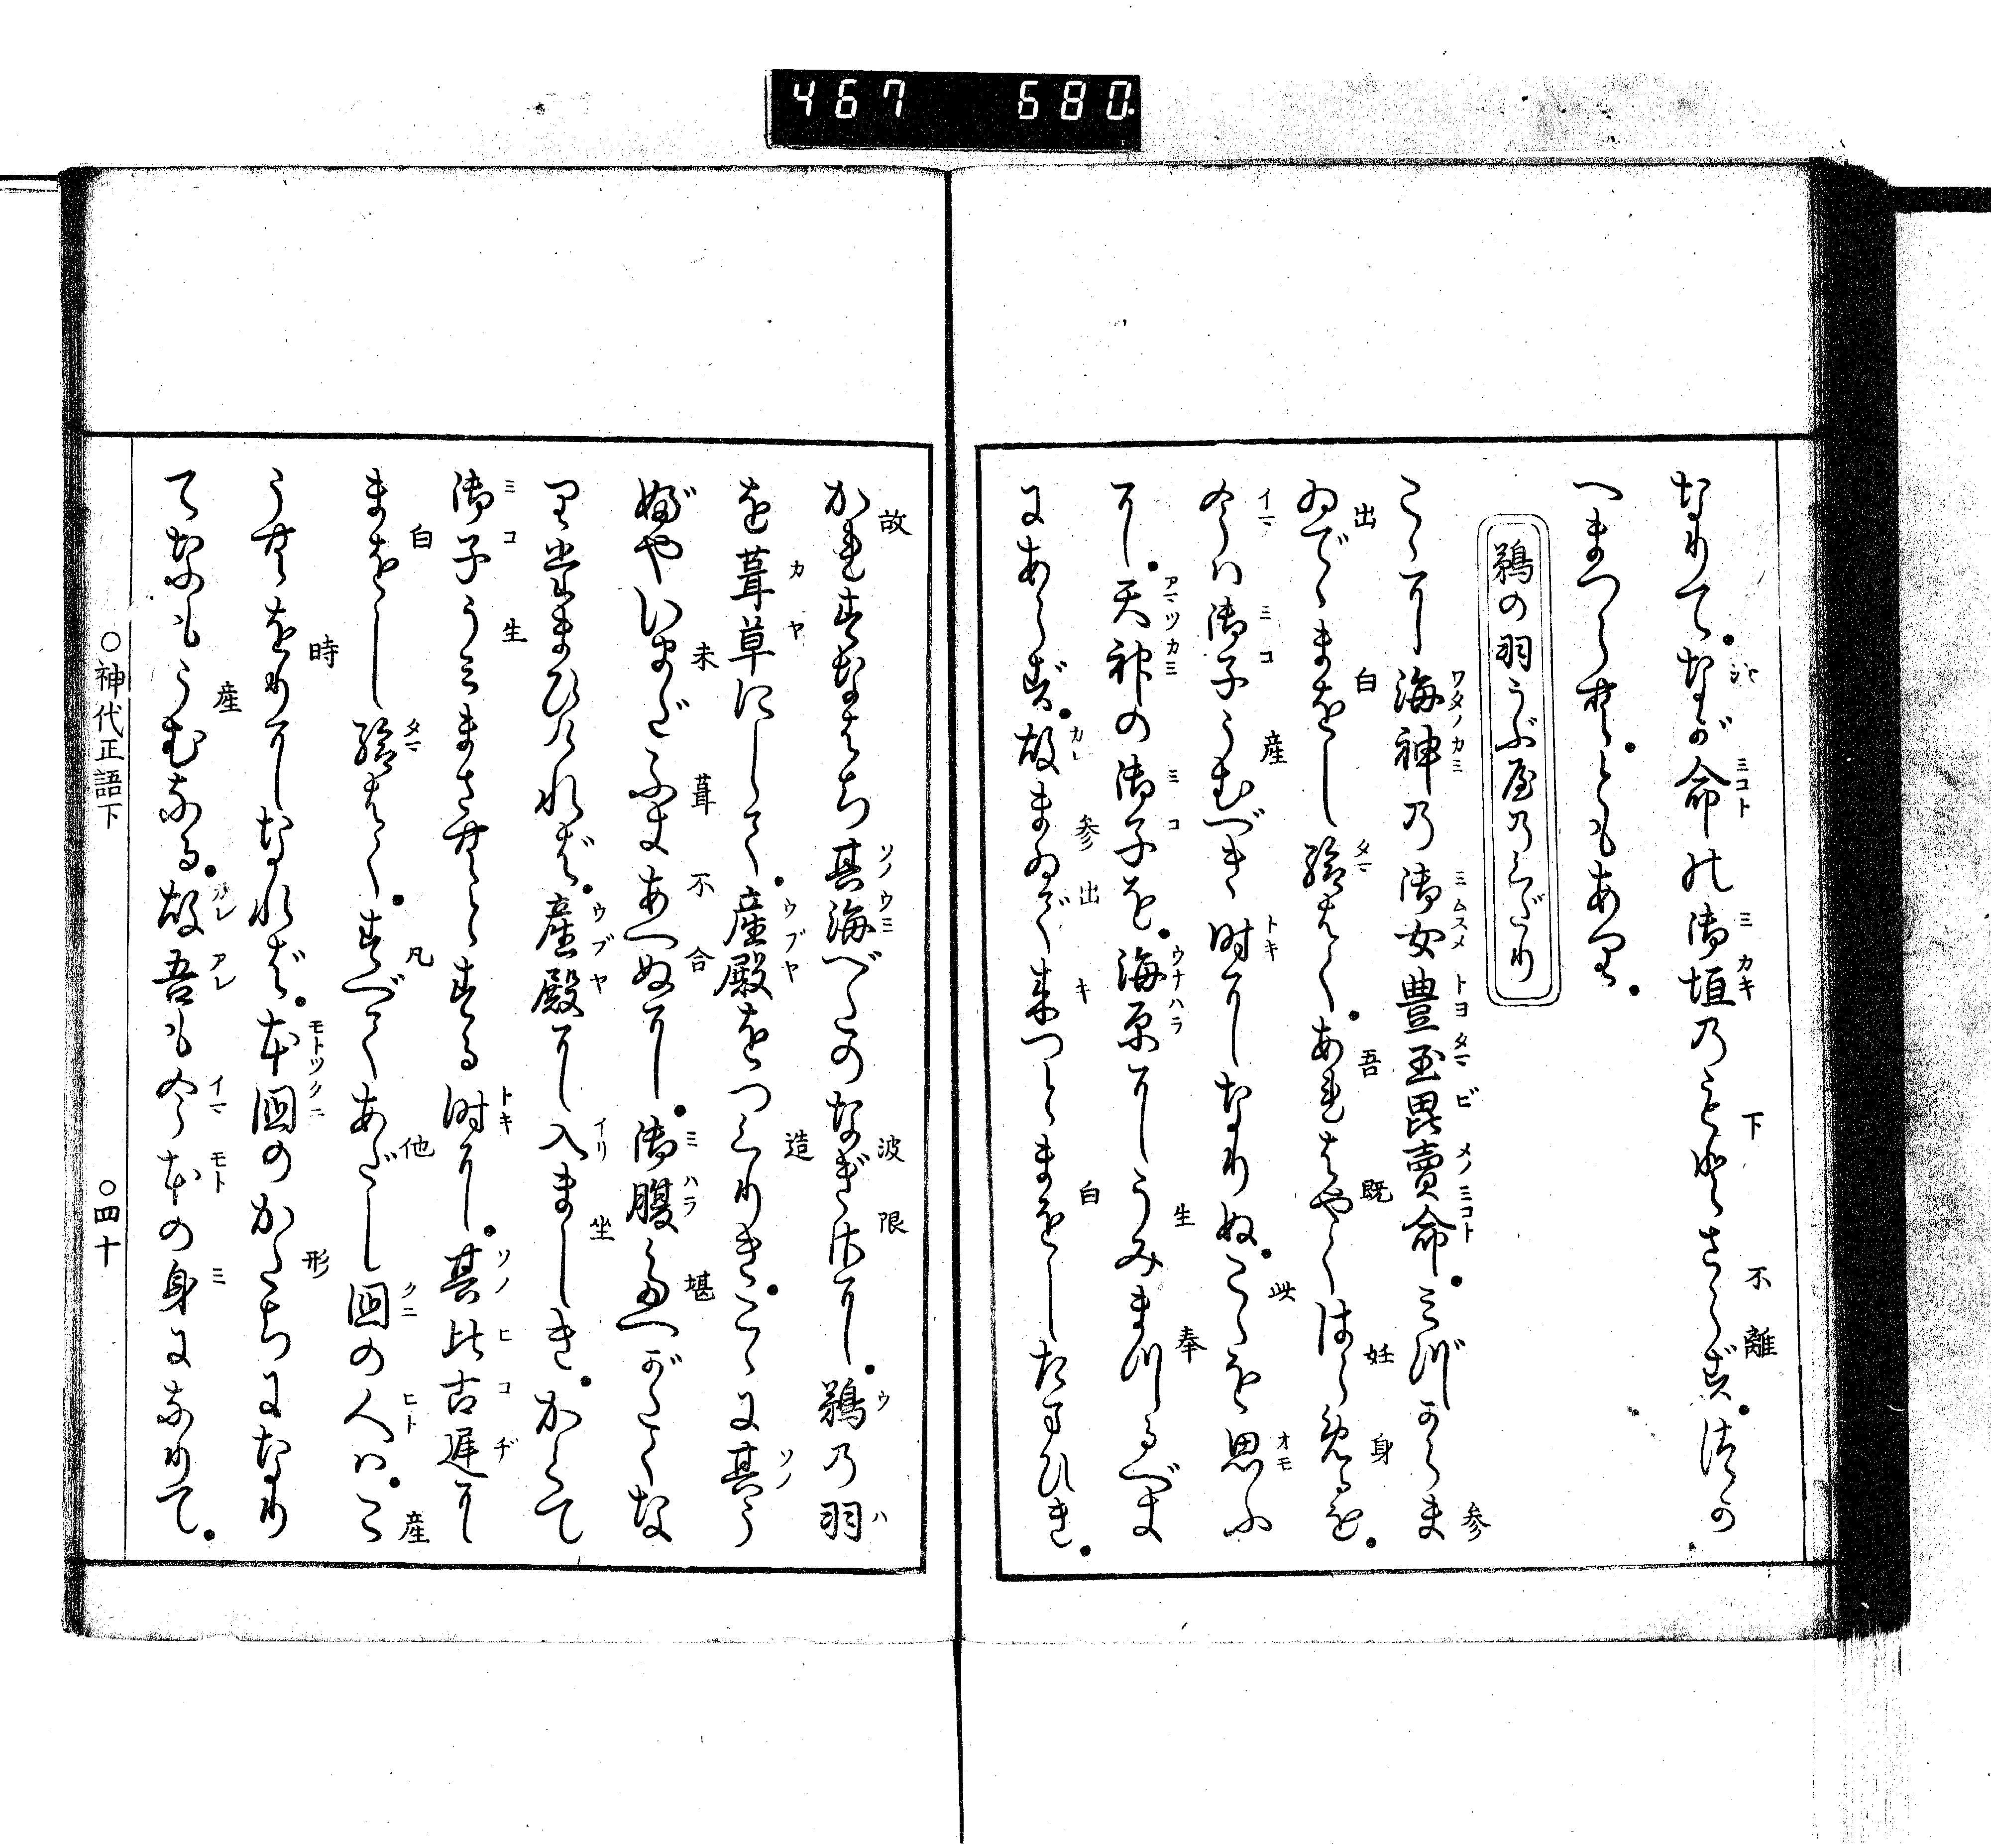 467 680
なりて。なが命の御垣のもとさらず。つか
へまつらむ。ともあり。
鵜の羽うぶ屋のくだり
こゝに海神の御女豊玉毘賣命。みづからま
ゐでゝまをし給はく。あれはやくはらめるを。
今ハ御子うむべき時になりぬ。こゝを思ふ
に。天神の御子を。海原にうみまつるべき
にあらず。故まゐで来つとまをしたまひき。
かれすなはち其海べたのなぎさに。鵜乃羽
を葺草にして。産殿をつくりき。こゝに其う
ぶやいまだふきあへぬに。御腹たへがたくな
り給ひければ。産殿に入ましき。かくて
御子うみまさむとする時に。其比古遅に
まをし給はく。すべてあだし国の人ハ。こ
うむをりになれば。本国のかたちになり
てなもうむなる。故吾も今本の身になりて。
○神代正語下 ○四十